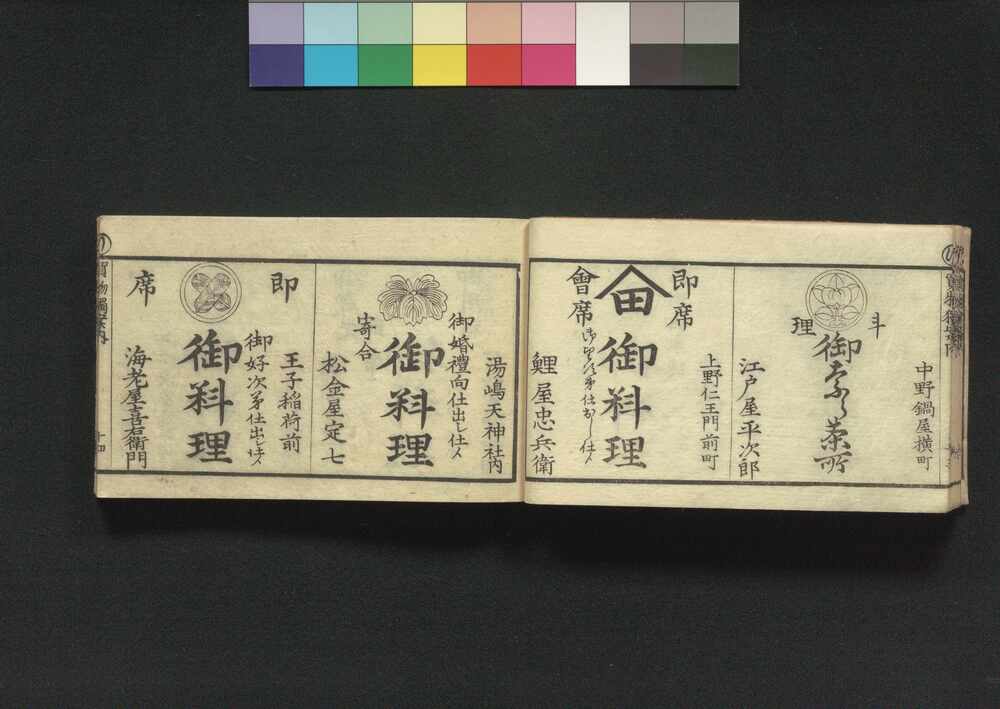 中野鍋屋横町
料理
御奈良茶所
江戸屋平次郎
上野仁王門前町
即席
御料理
會席
鯉屋忠兵衛
湯嶋天神社内
御婚禮向仕出し仕候
御料理
寄合
松金屋定七
王子稲荷前
御好次第仕出し仕候
即席
御料理
海老屋喜右衛門
十四